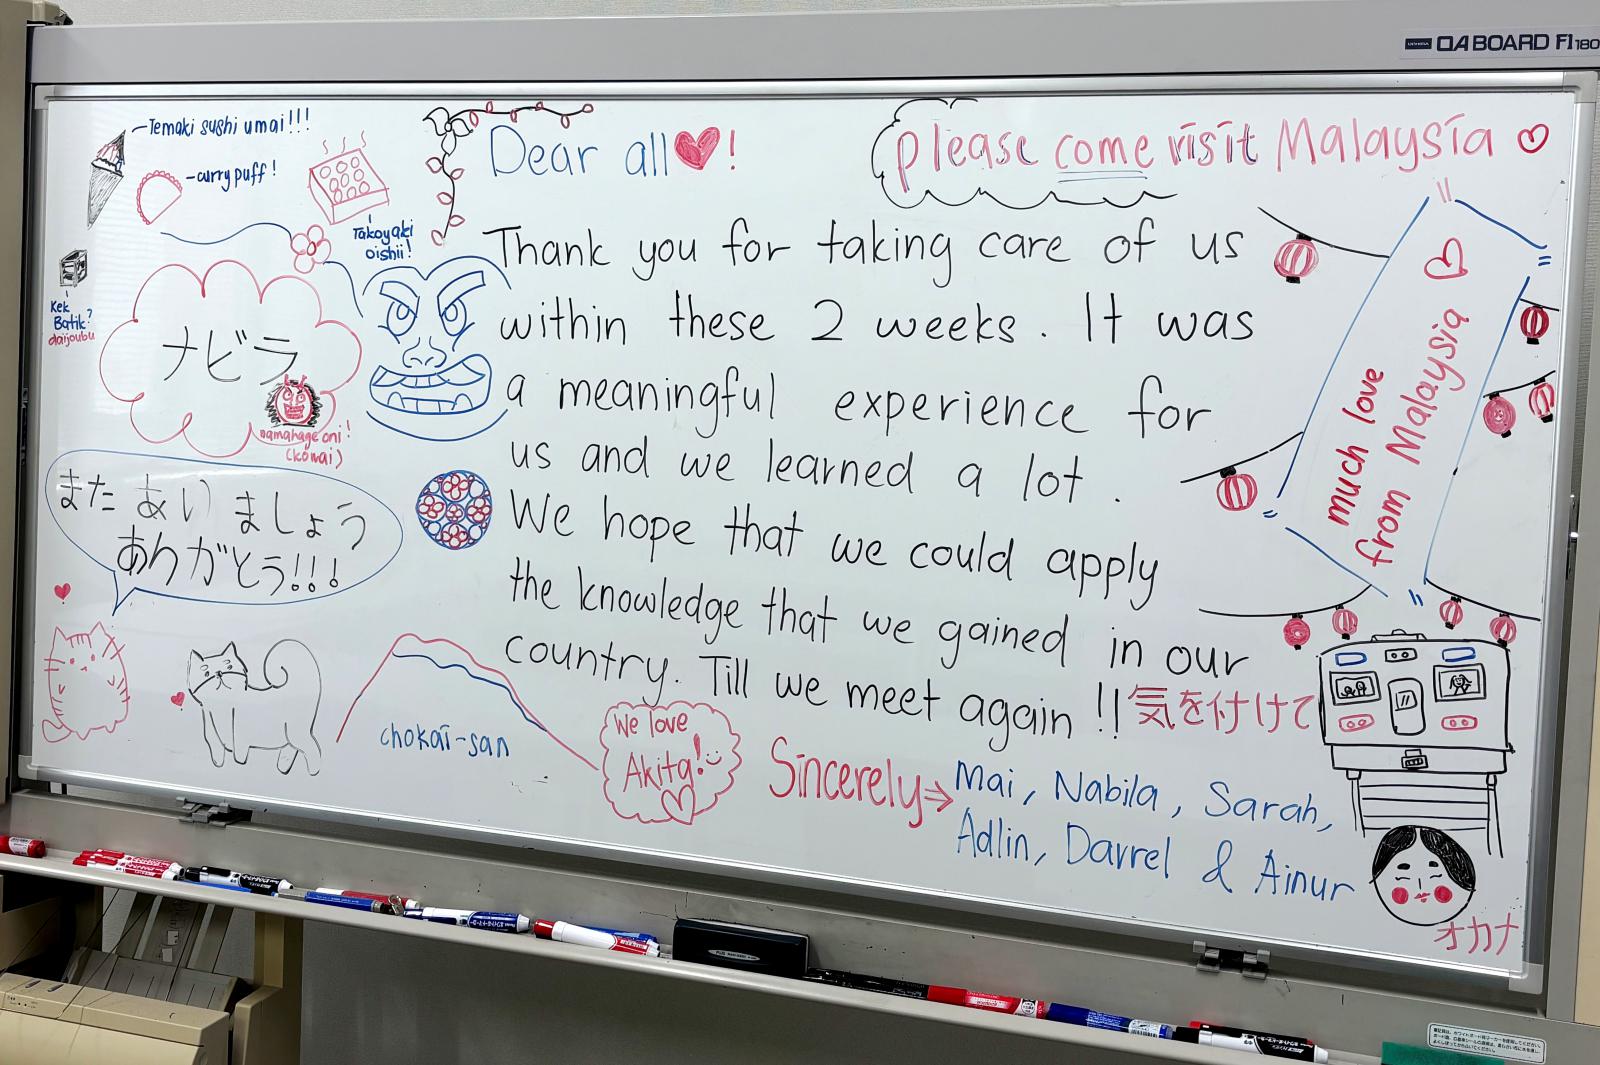 OA BOARD F1 180
Temaki sushi umai!!!
curry puff!
Takoyaki
oishii!
Kek
Batik?
daijoubu
ナビラ
namahage oni!
(kowai)
また あいましょう
ありがとう!!!
chokai-san
We love
Akita!
Dear all ♥!
Please come visit Malaysia ♡
Thank you for taking care of us
within these 2 weeks. It was
a meaningful experience for
us and we learned a lot.
We hope that we could apply
the knowledge that we gained in our
country. Till we meet again!! 気を付けて
much love
from Malaysia ♡
Sincerely → Mai, Nabila, Sarah,
Adlin, Darrel & Ainur
オカナ